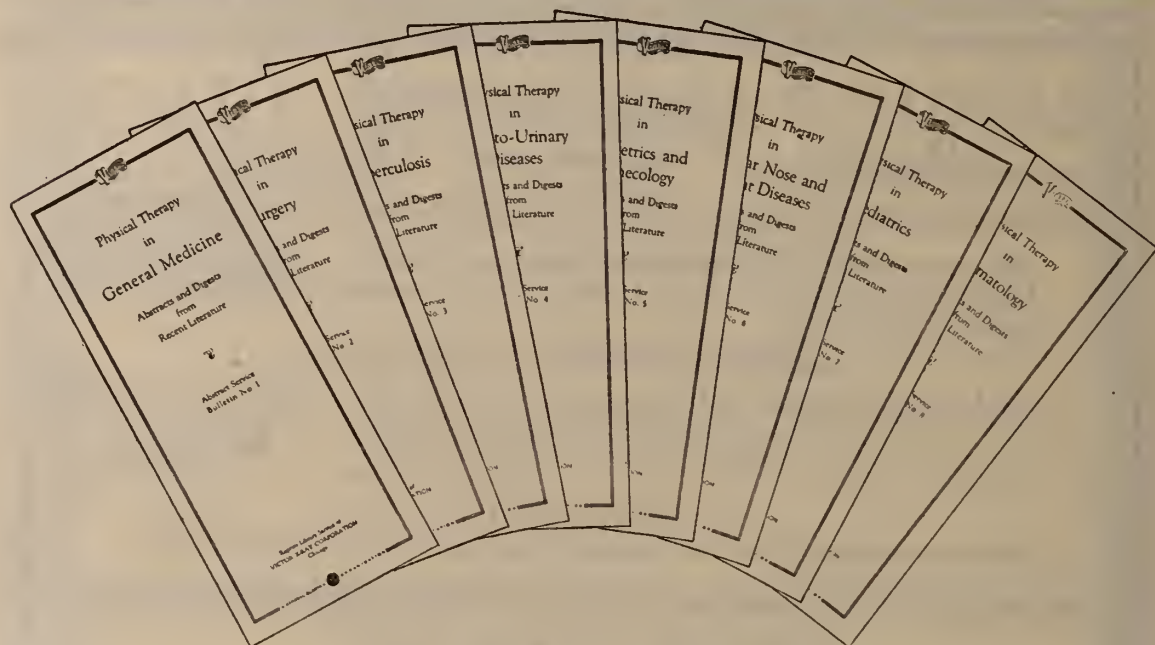 Physical Therapy
in
General Medicine
Abstracts and Digests
from
Recent Literature
Abstract Service
Bulletin No 1
VICTOR X-RAY CORPORATION
Chicago
ical Therapy
in
urgery
and Digests
from
Literature
ervice
No 2
sical Therapy
in
erculosis
s and Digests
from
Literature
ervice
No. 3
ysical Therapy
in
to-Urinary
iseases
ts and Digests
from
Literature
ervice
No. 4
sical Therapy
in
etrics and
necology
s and Digests
from
Literature
ervice
No. 5
sical Therapy
in
ar Nose and
at Diseases
ts and Digests
from
Literature
ervice
No. 6
sical Therapy
in
diatrics
ts and Digests
from
Literature
ervice
No. 7
sical Therapy
in
matology
ts and Digests
from
Literature
ervice
No. 8